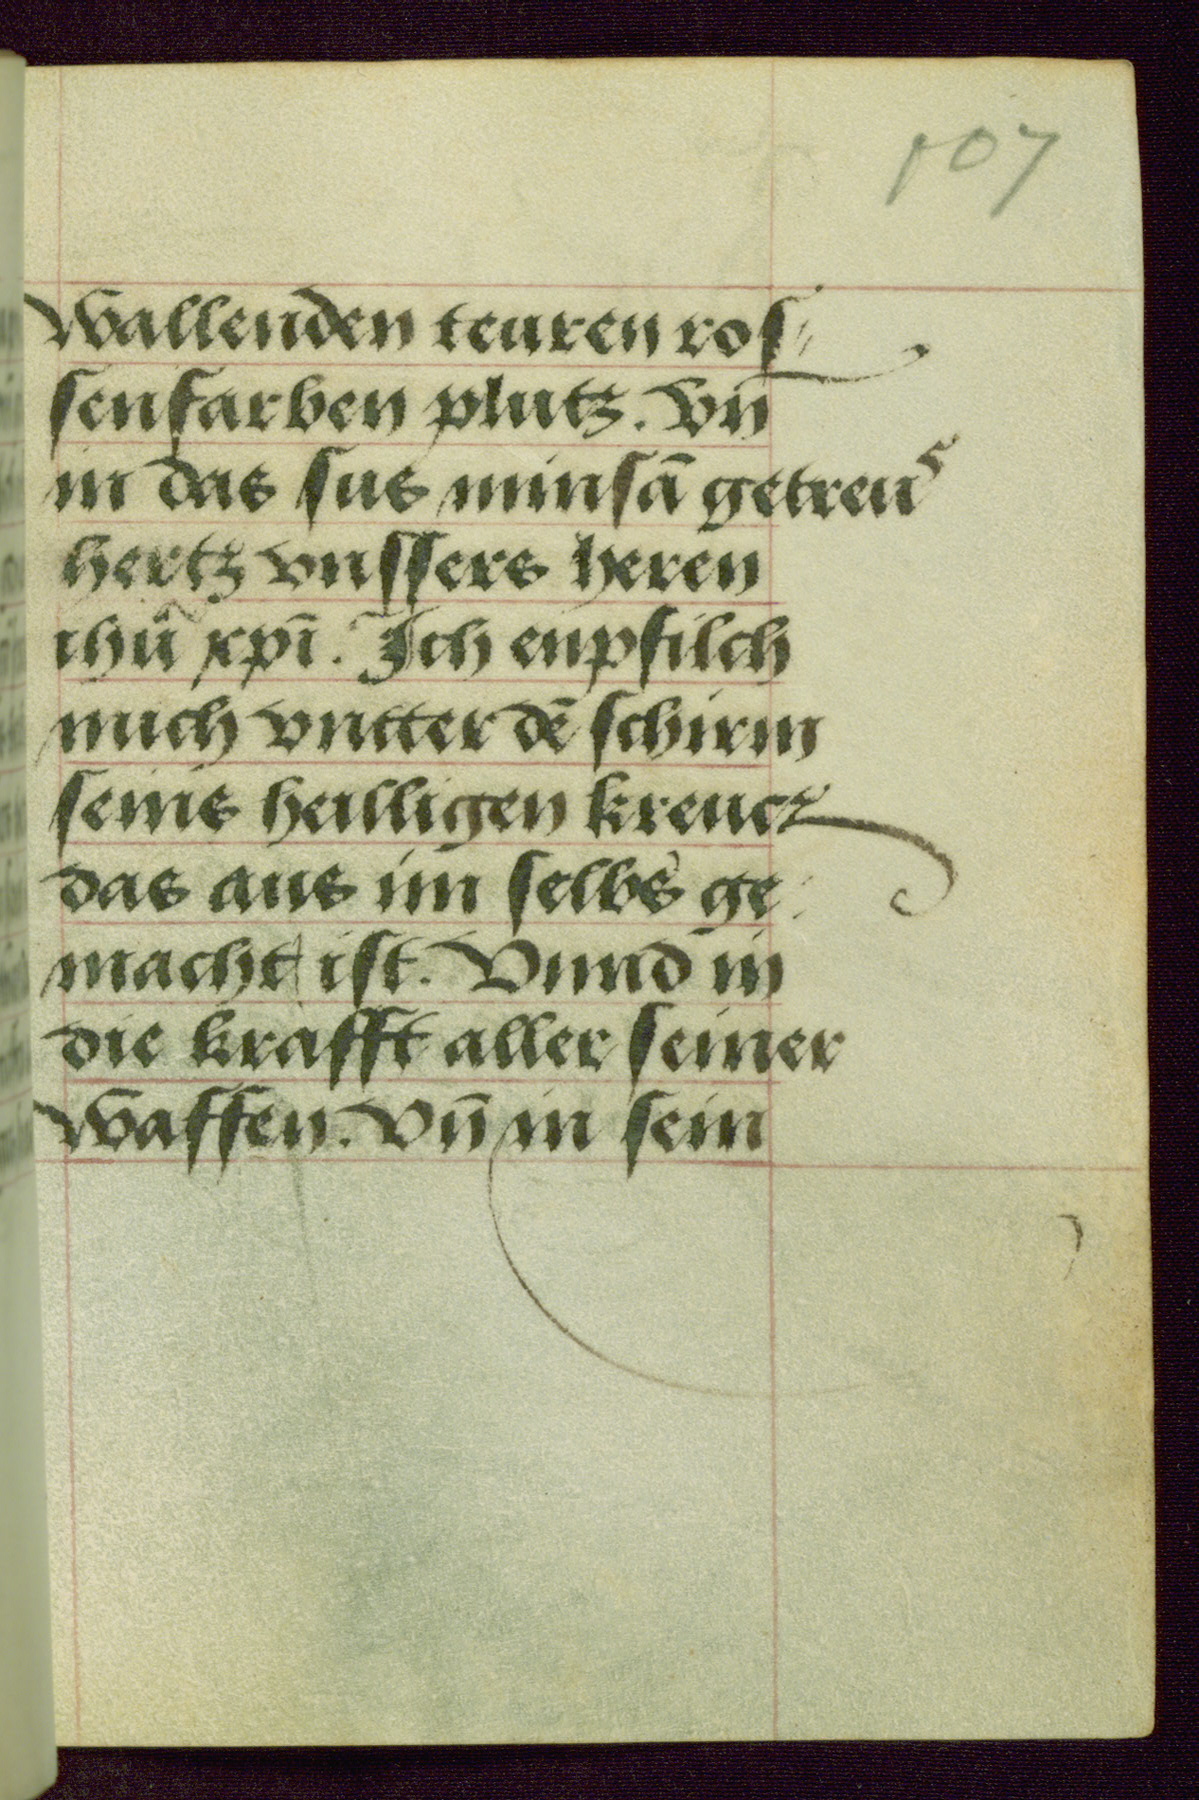 107
wallenden teuren ros⸗
senfarben plutz. Vn̄
in das sus minsā getreuͬ
hertz vnssers heren
ihū xp̄i. Ich enpfilch
mich vntter dē schirm
seins heilligen kreucz
das aus im selbs ge⸗
macht ist. Vnnd in
die krafft aller seiner
waffen. Vn̄ in sein